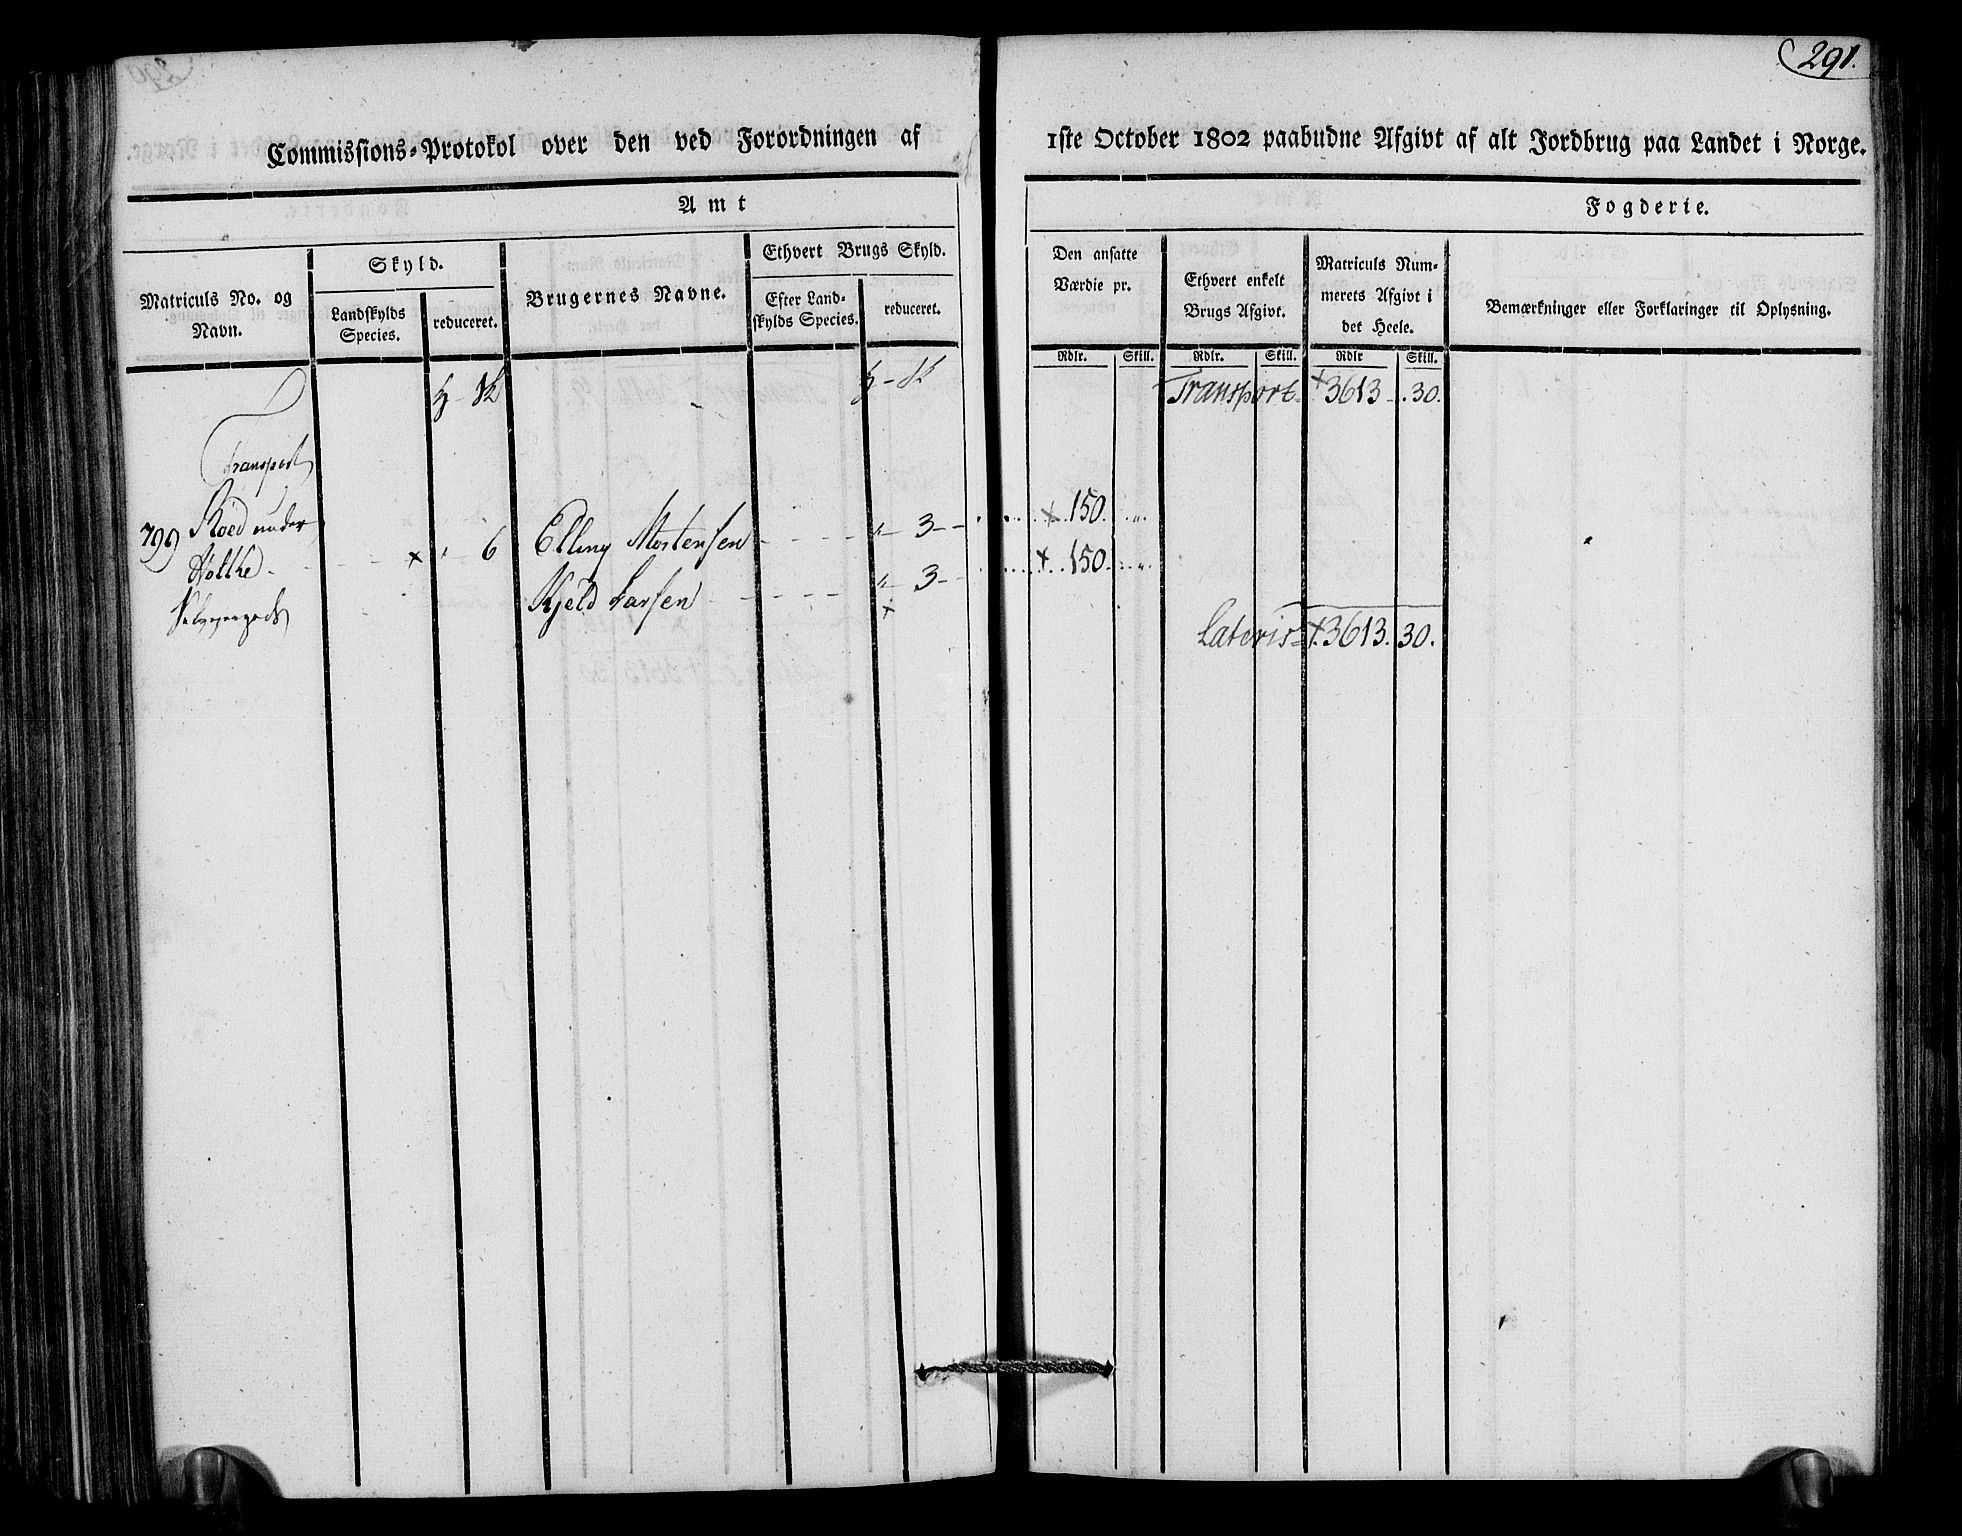 291.
Commissions-Protokol over den ved Forordningen af 1ste October 1802 paabudne Afgivt af alt Jordbrug paa Landet i Norge.
Amt
Fogderie.
Matriculs No. og Navn.
Skyld.
Landskylds Species.
reduceret.
Brugernes Navne.
Ethvert Brugs Skyld.
Efter Landskylds Species.
reduceret.
Den ansatte Værdie pr.
Ethvert enkelt Brugs Afgivt.
Matriculs Nummerets Afgivt i det Heele.
Bemærkninger eller Forklaringer til Oplysning.
Rdlr. Skill. Rdlr. Skill. Rdlr Skill.
Transport 3613 30.
Transport
799 Röed under
Holthe 6
Selveyergods
Elling Mortensen 3 150
Kjeld Larsen 3 150
Lateris 3613. 30.